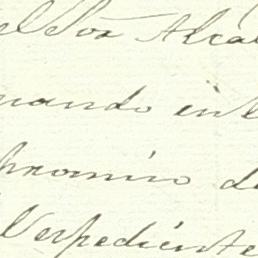 el Sor Alca
uando in
promiso de
Verpediente